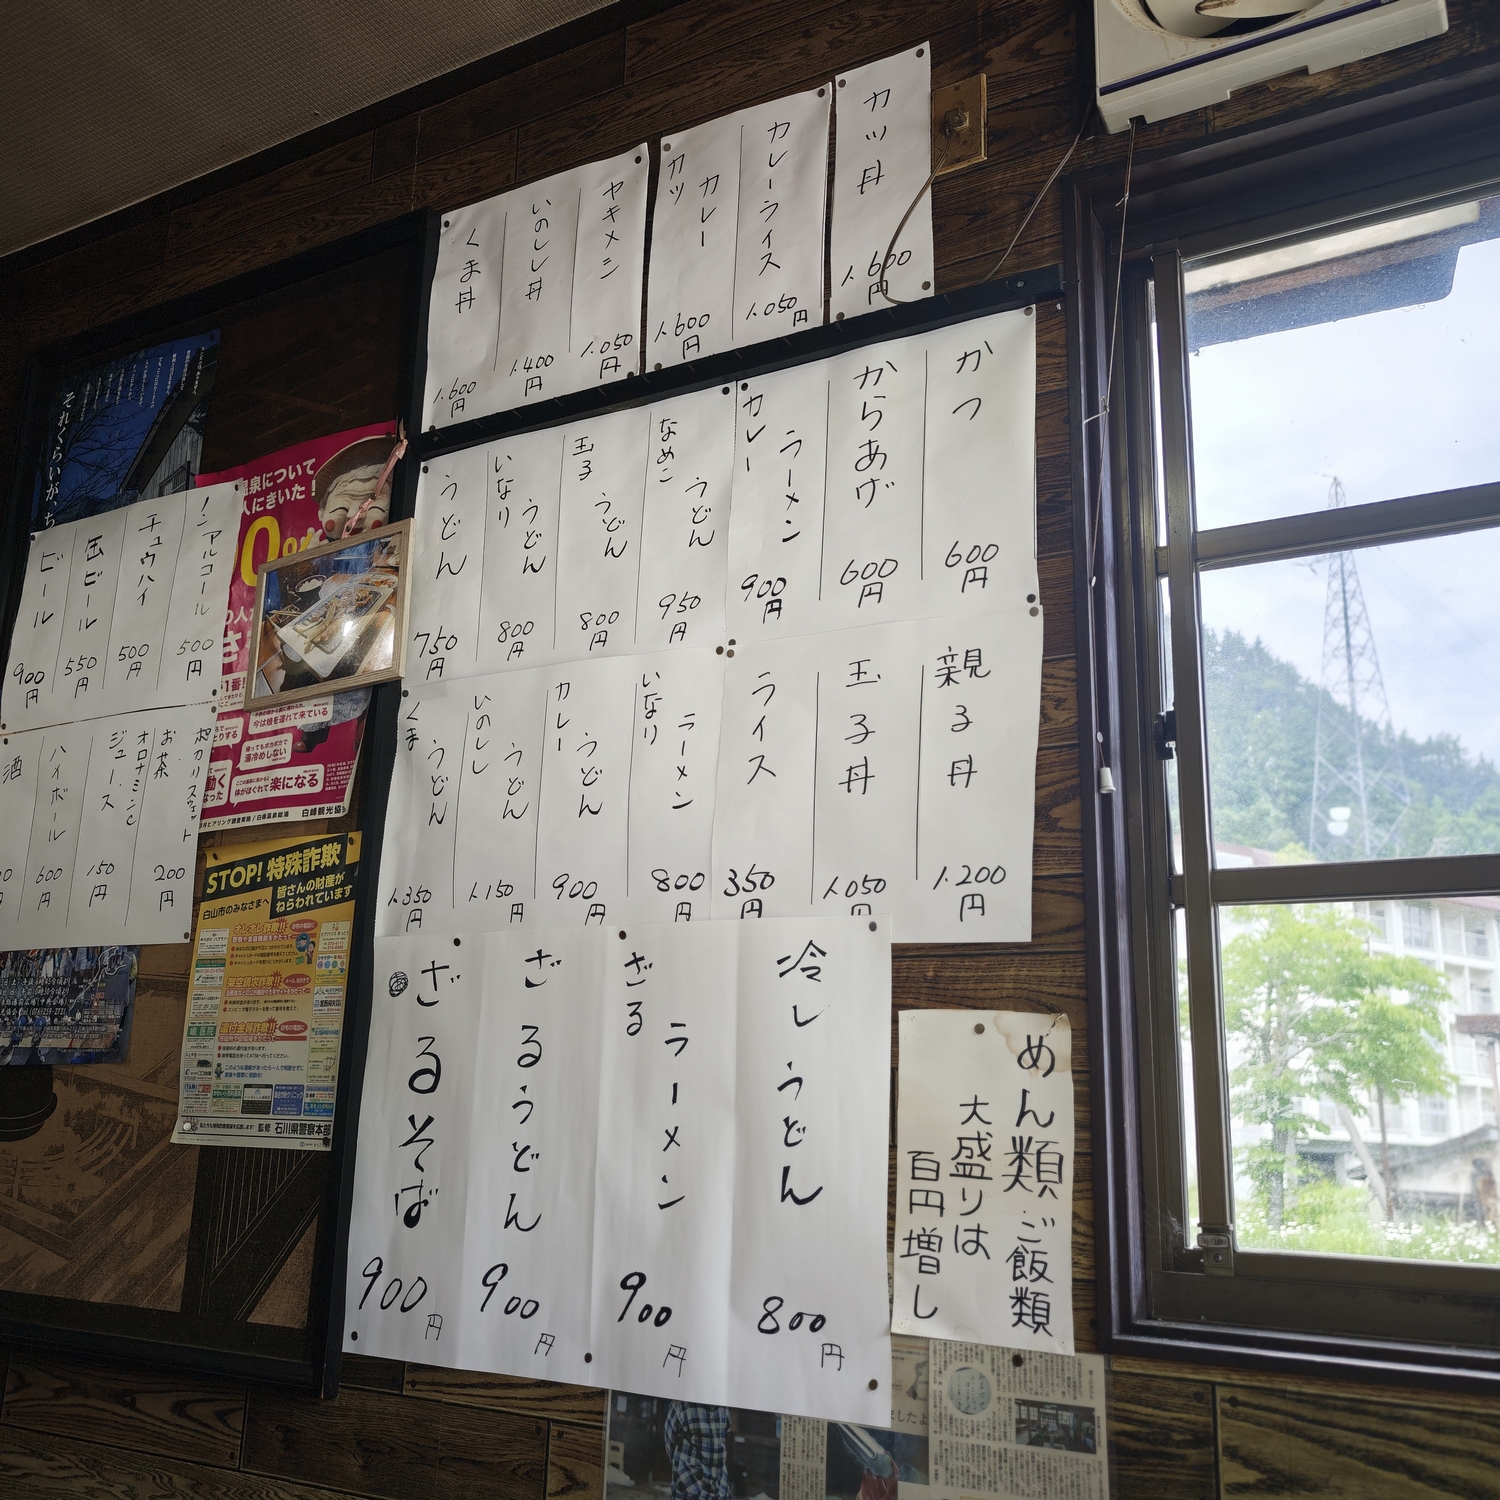 カツ丼 1.600円
カレーライス 1.050円
カツカレー 1.600円
ヤキメシ 1.050円
いのしし丼 1.400円
くま丼 1.600円
かつ 600円
からあげ 600円
カレーラーメン 900円
なめこうどん 950円
玉子うどん 800円
いなりうどん 800円
うどん 750円
親子丼 1.200円
玉子丼 1.050円
ライス 350円
いなりラーメン 800円
カレーうどん 900円
いのししうどん 1.150円
くまうどん 1.350円
冷しうどん 800円
ざるラーメン 900円
ざるうどん 900円
ざるそば 900円
めん類ご飯類
大盛りは
百円増し
ノンアルコール 500円
チュウハイ 500円
缶ビール 550円
ビール 900円
ポカリスウェット
お茶
オロナミンC
200円
ジュース 150円
ハイボール 600円
酒
それくらいが、ち
温泉について
人にきいた!
0%
今は娘を連れて来ている
帰ってもポカポカで
湯冷めしない
体がほぐれて楽になる
白峰観光協
STOP!特殊詐欺
皆さんの財産が
ねらわれています
白山市のみなさまへ
オレオレ詐欺!!
架空請求詐欺!!
還付金等詐欺!!
監修 石川県警察本部
ましたよ